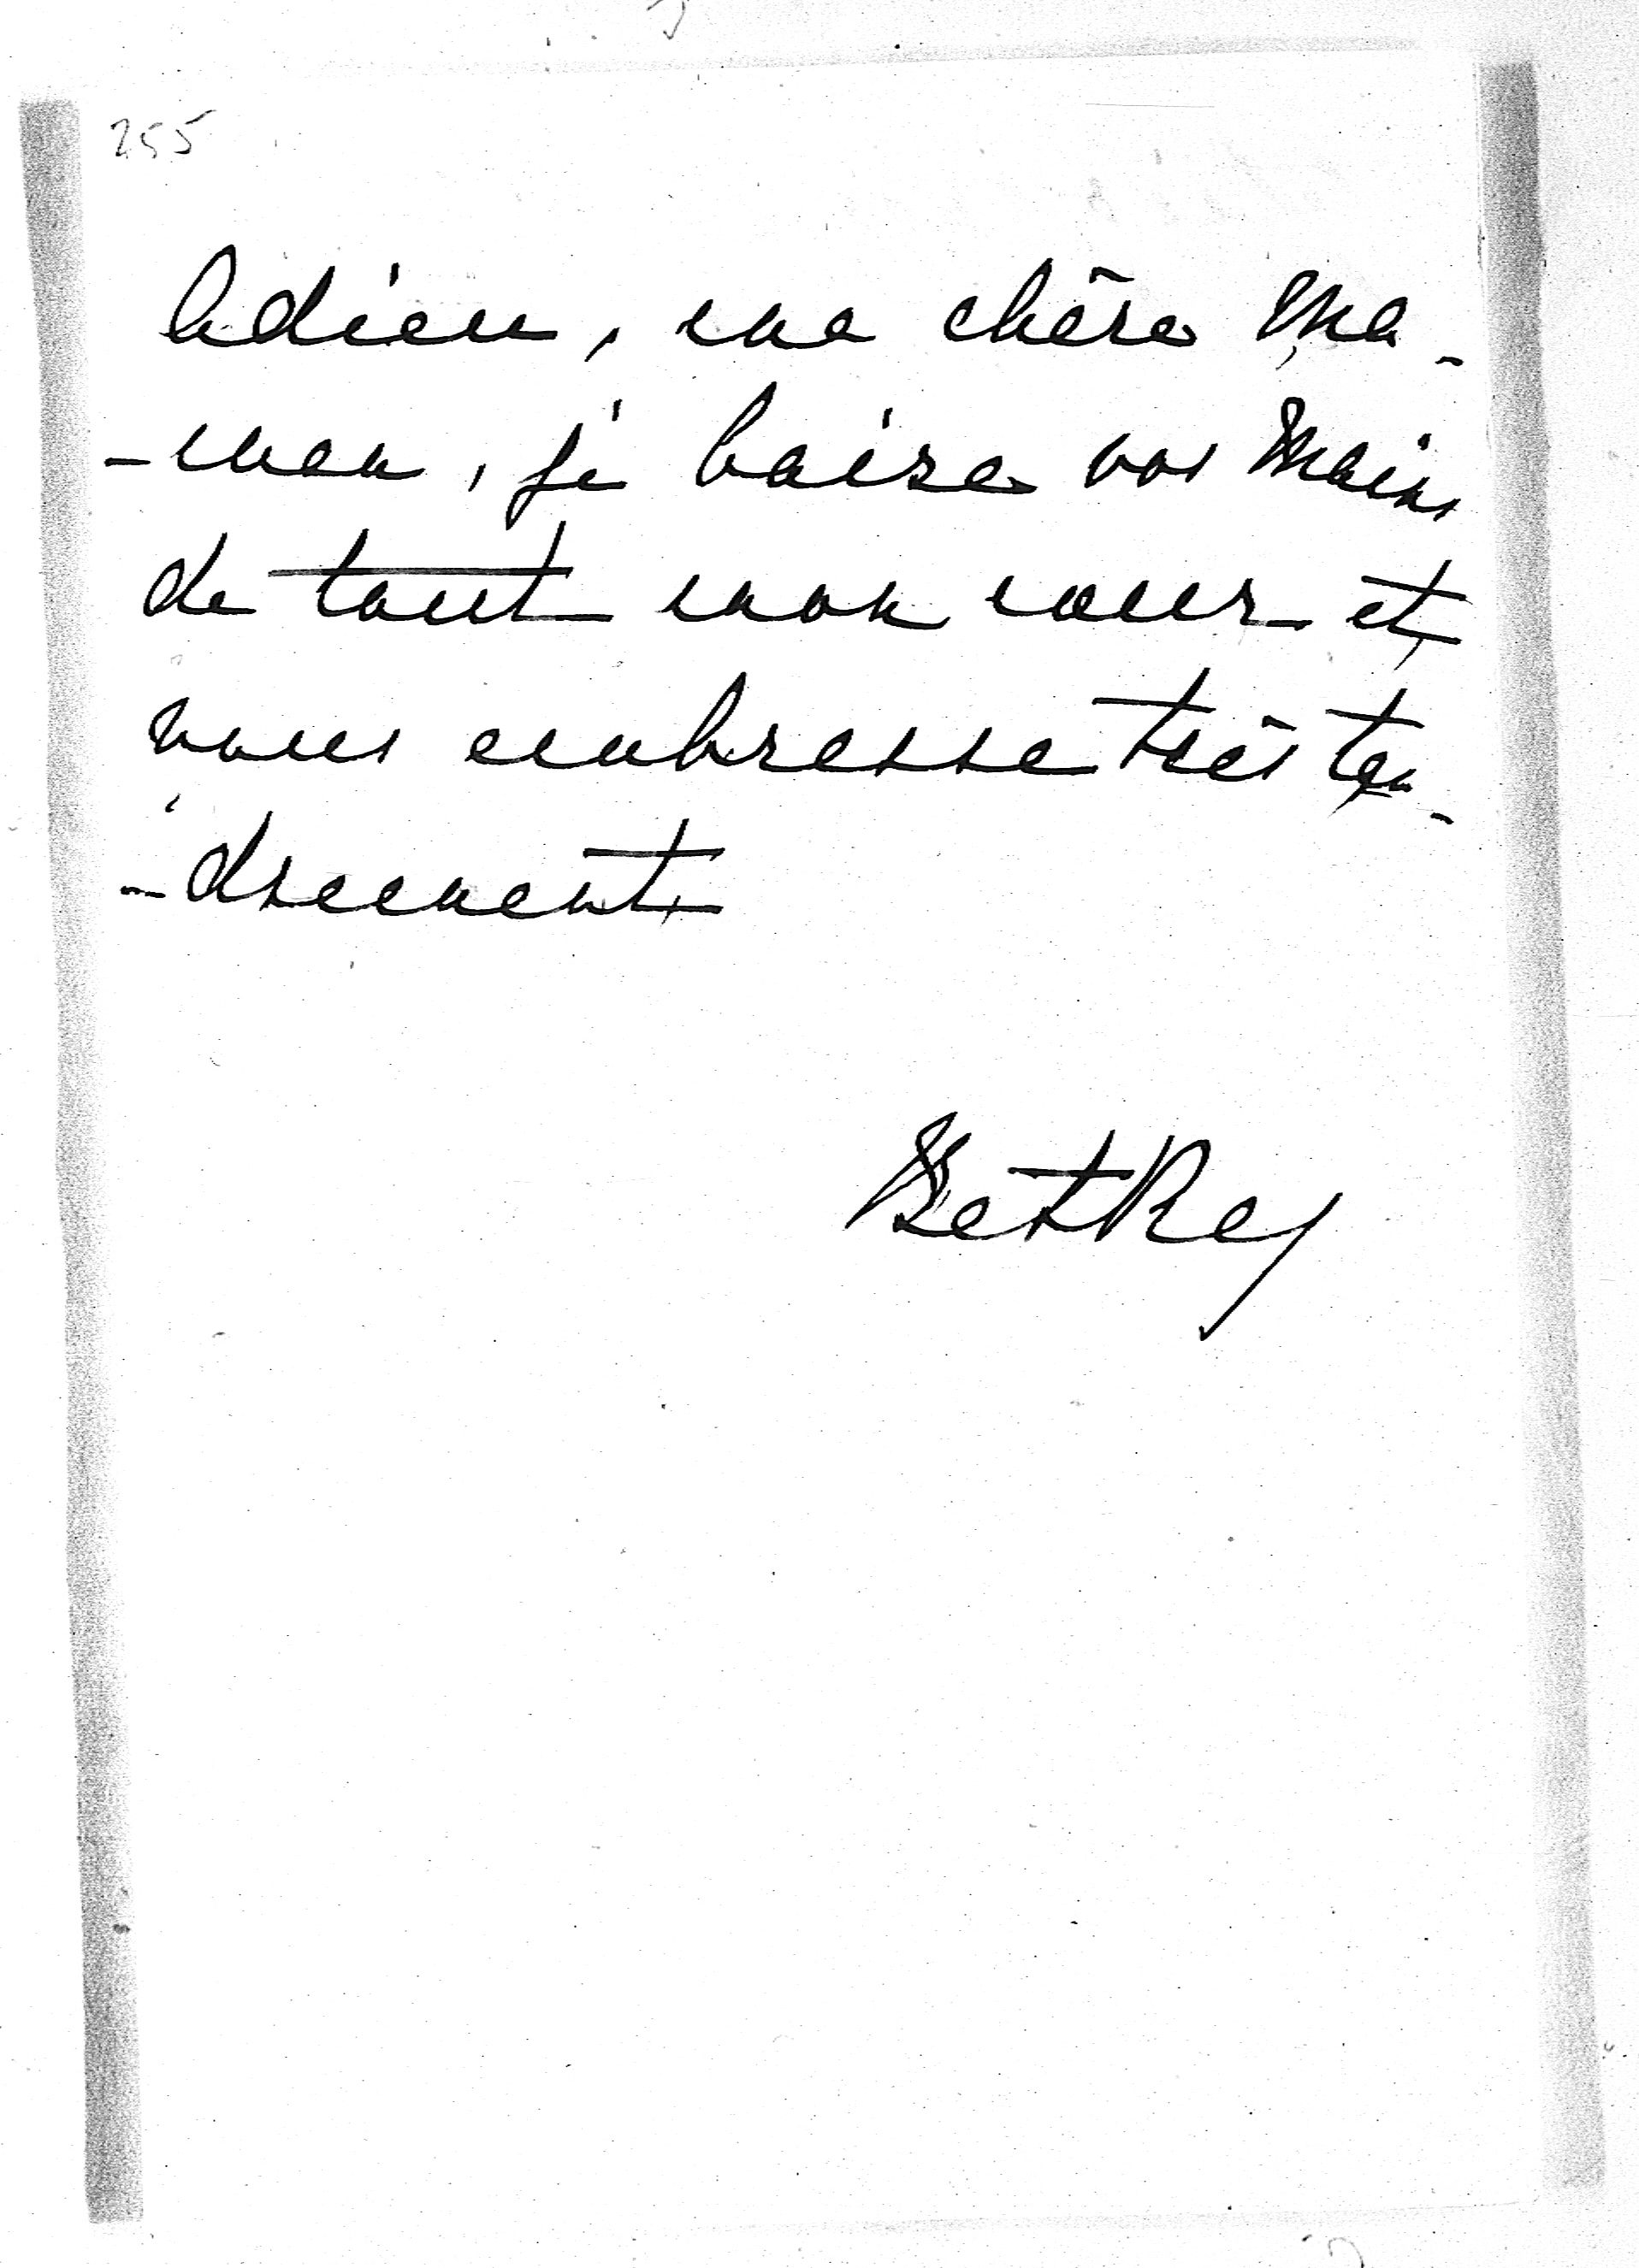 255
Adieu, ma chère Ma-
-man, je baise vos mains
de tout mon cœur et
vous embrasse très ten-
-drement
Betkey